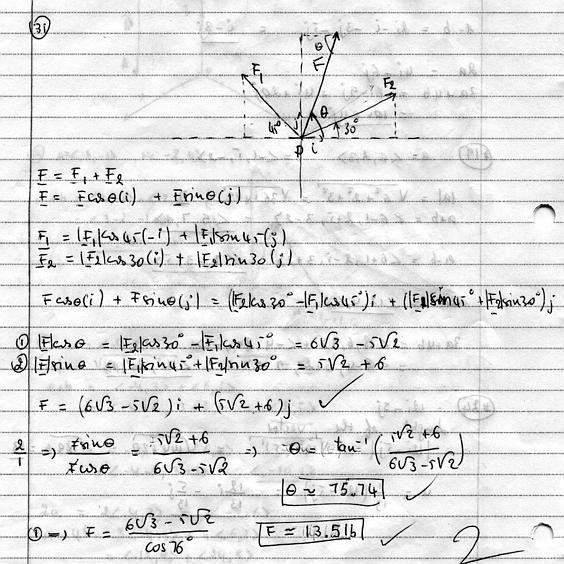 31
θ
F
F₁
F₂
θ
45°
j
30°
P i
F = F₁ + F₂
F = F cosθ(i) + F sinθ(j)
F₁ = |F₁|cos45(-i) + |F₁|sin45(j)
F₂ = |F₂|cos30(i) + |F₂|sin30(j)
F cosθ(i) + F sinθ(j) = (|F₂|cos30° - |F₁|cos45°)i + (|F₁|sin45° + |F₂|sin30°)j
① |F|cosθ = |F₂|cos30° - |F₁|cos45° = 6√3 - 5√2
② |F|sinθ = |F₁|sin45° + |F₂|sin30° = 5√2 + 6
F = (6√3 - 5√2)i + (5√2 + 6)j ✓
2/1 => F sinθ / F cosθ = 5√2 + 6 / 6√3 - 5√2 => θ = tan⁻¹ (5√2 + 6 / 6√3 - 5√2)
θ ≈ 75.74 ✓
① => F = 6√3 - 5√2 / cos76° F ≈ 13.51b ✓
2